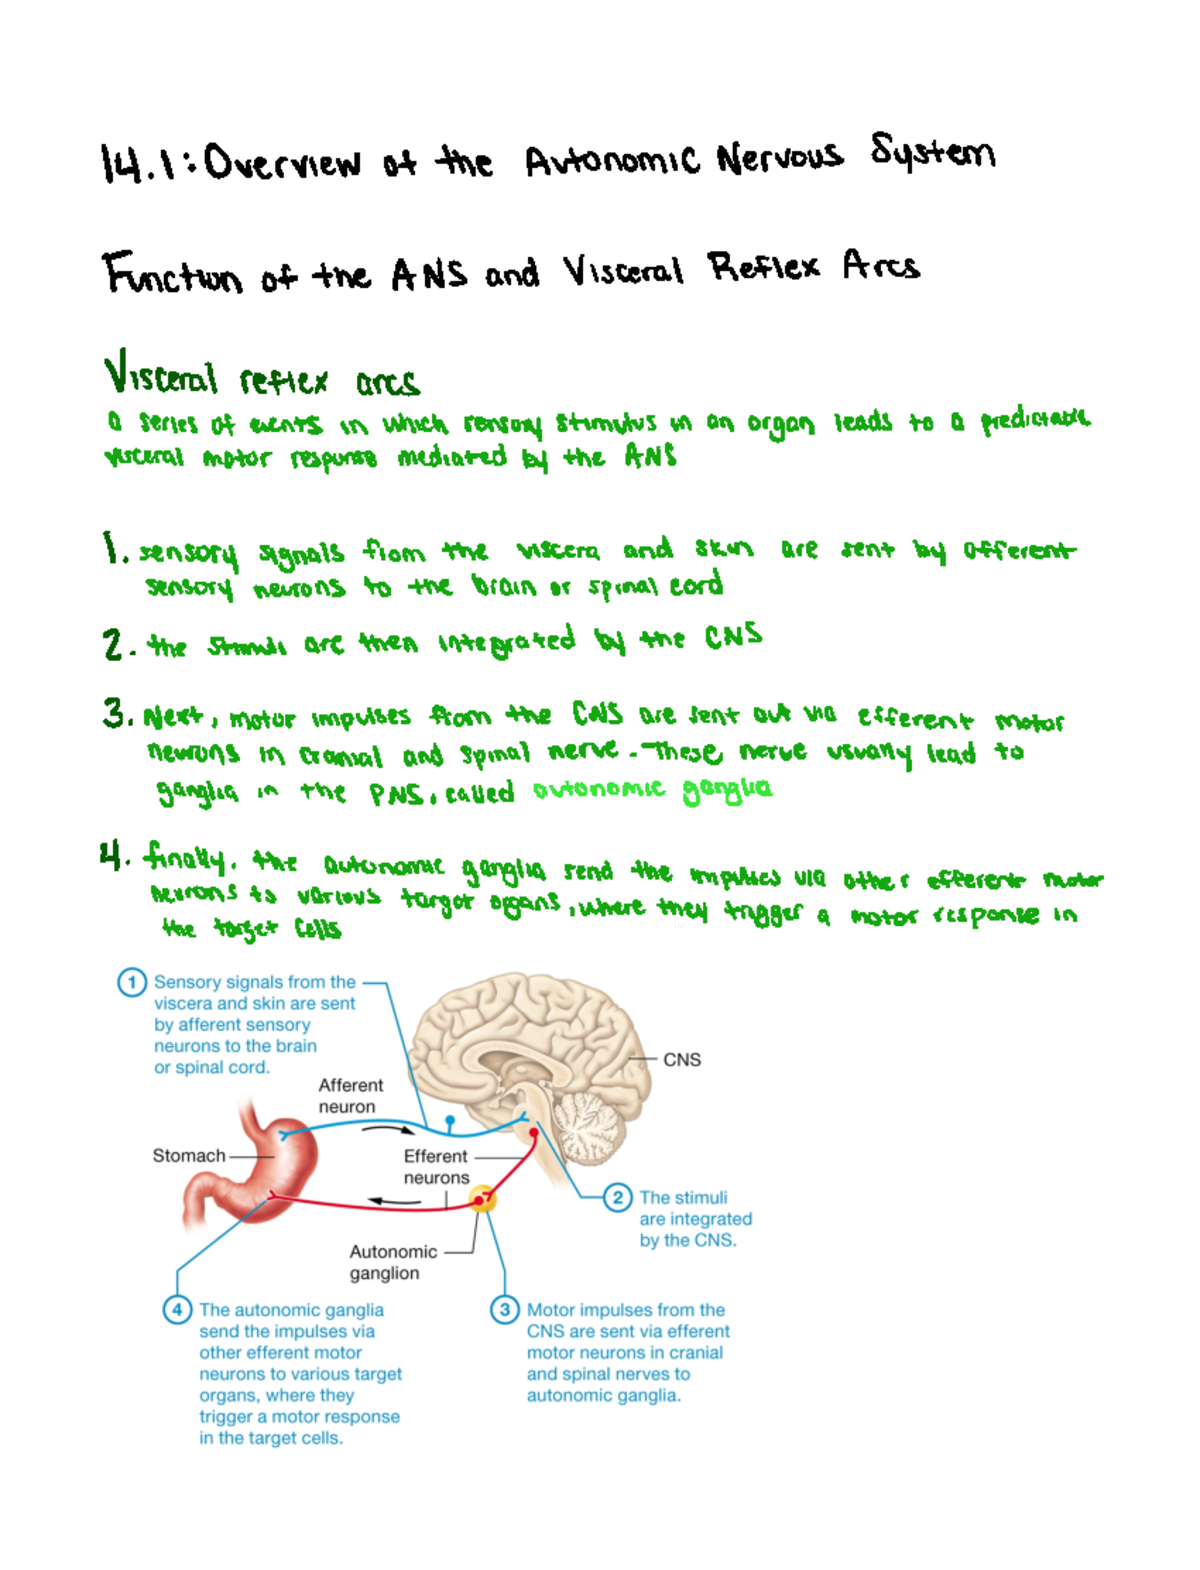 14.1: Overview of the Autonomic Nervous System
Function of the ANS and Visceral Reflex Arcs
Visceral reflex arcs
a series of events in which sensory stimulus in an organ leads to a predictable
visceral motor response mediated by the ANS
1. sensory signals from the viscera and skin are sent by afferent
sensory neurons to the brain or spinal cord
2. the stimuli are then integrated by the CNS
3. Next, motor impulses from the CNS are sent out via efferent motor
neurons in cranial and spinal nerve. These nerve usually lead to
ganglia in the PNS, called autonomic ganglia
4. finally, the autonomic ganglia send the impulses via other efferent motor
neurons to various target organs, where they trigger a motor response in
the target cells
1 Sensory signals from the
viscera and skin are sent
by afferent sensory
neurons to the brain
or spinal cord.
CNS
Afferent
neuron
Stomach
Efferent
neurons
2 The stimuli
are integrated
by the CNS.
Autonomic
ganglion
4 The autonomic ganglia
send the impulses via
other efferent motor
neurons to various target
organs, where they
trigger a motor response
in the target cells.
3 Motor impulses from the
CNS are sent via efferent
motor neurons in cranial
and spinal nerves to
autonomic ganglia.